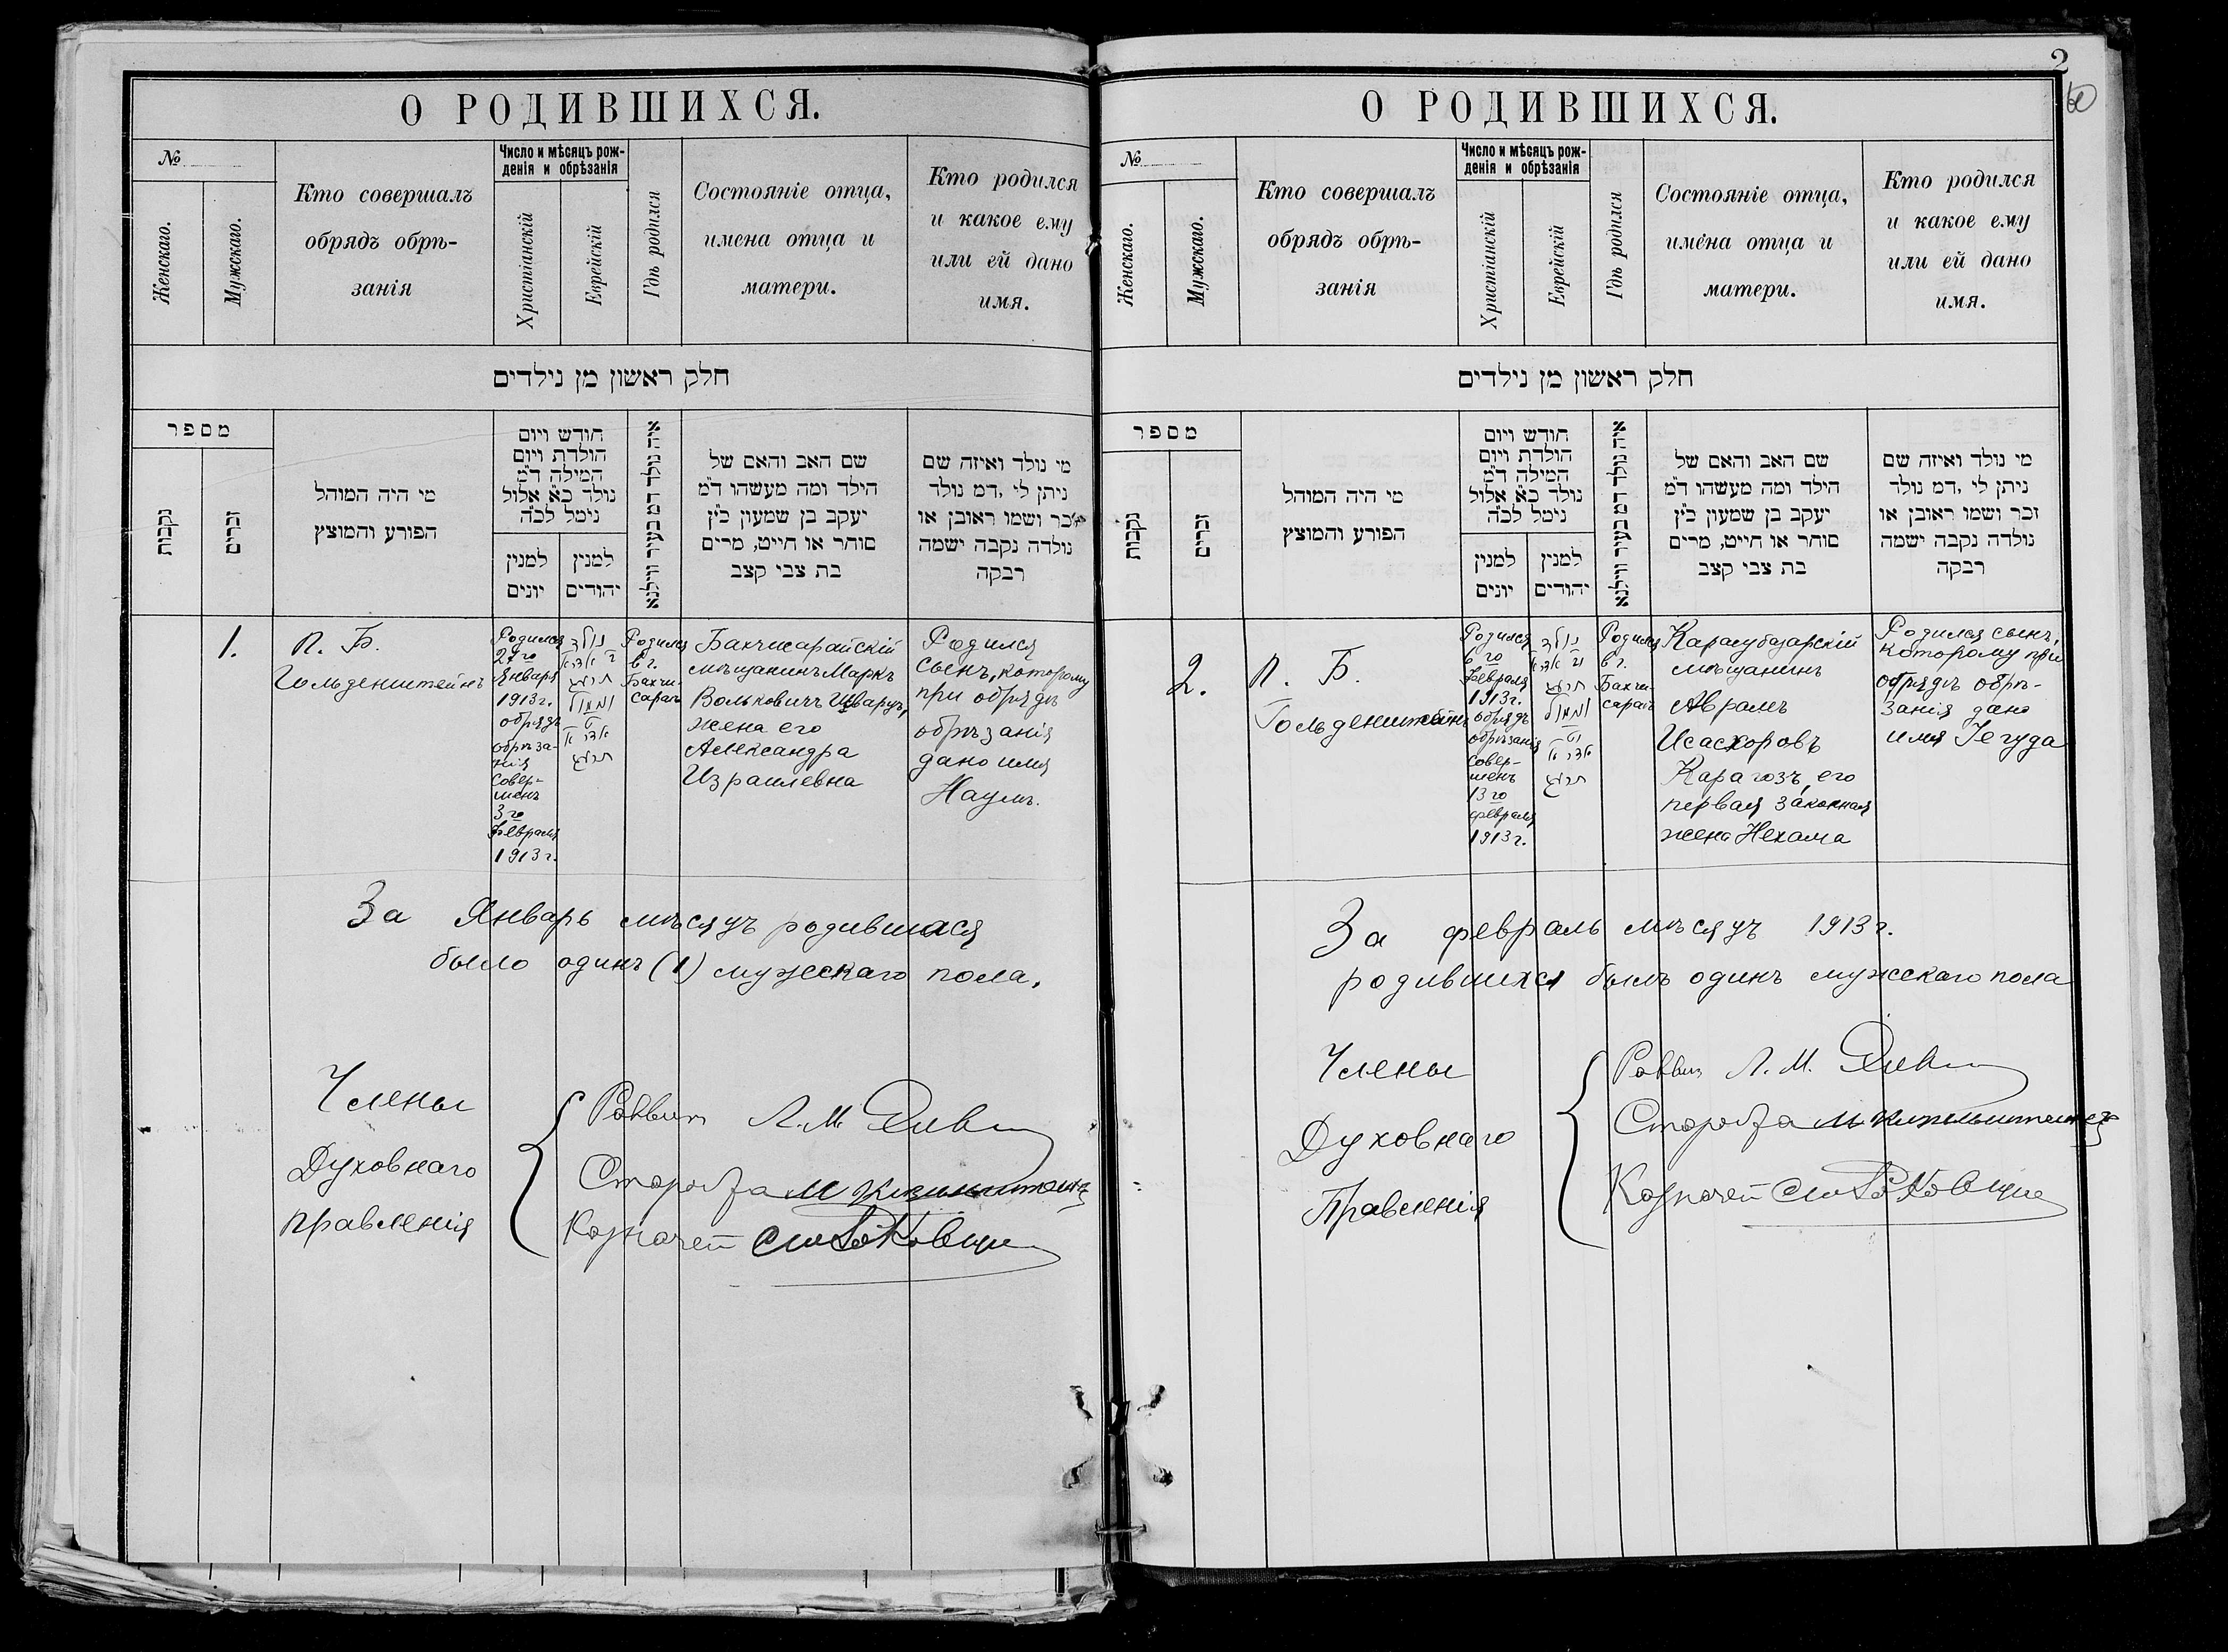 О РОДИВШИХСЯ.
№
Женскаго.
Мужскаго.
Кто совершалъ
обрядъ обрѣ-
занія
Число и мѣсяцъ рож-
денія и обрѣзанія
Христіанскій
Еврейскій
Гдѣ родился
Состояніе отца,
имена отца и
матери.
Кто родился
и какое ему
или ей дано
имя.
חלק ראשון מן נילדים
מספר
נקבות
זכרים
מי היה המוהל
הפורע והמוצץ
חודש ויום
הולדת ויום
המילה ד"מ
נולד כ"א אלול
נימל לכ"ה
למנין
יונים
למנין
יהודים
איה נולד דמ בעיר ווילנא
שם האב והאם של
הילד ומה מעשהו ד"מ
יעקב בן שמעון כ"ץ
סוחר או חייט, מרים
בת צבי קצב
מי נולד ואיזה שם
ניתן לי, דמ נולד
זכר ושמו ראובן או
נולדה נקבה ישמה
רבקה
1.
П. Б.
Гольденштейнъ
Родился
27го
Января
1913г.
обрядъ
обрѣза-
нія
совер-
шенъ
3го
Февраля
1913г.
נולד
אדר א
תרעג
ונמול
אדר א
תרעג
Родился
в г.
Бахчи-
сараѣ
Бахчисарайскій
мѣщанинъ Маркъ
Вольковичъ Шварцъ,
жена его
Александра
Израилевна
Родился
сынъ, которому
при обрядѣ
обрѣзанія
дано имя
Наумъ.
За Январь мѣсяцъ родившихся
было одинъ (1) мужескаго пола.
Члены
Духовнаго
правленія
Раввин Л. М.
Староста М
Казначей
2
О РОДИВШИХСЯ.
№
Женскаго.
Мужскаго.
Кто совершалъ
обрядъ обрѣ-
занія
Число и мѣсяцъ рож-
денія и обрѣзанія
Христіанскій
Еврейскій
Гдѣ родился
Состояніе отца,
имена отца и
матери.
Кто родился
и какое ему
или ей дано
имя.
חלק ראשון מן נילדים
מספר
נקבות
זכרים
מי היה המוהל
הפורע והמוצץ
חודש ויום
הולדת ויום
המילה ד"מ
נולד כ"א אלול
נימל לכ"ה
למנין
יונים
למנין
יהודים
איה נולד דמ בעיר ווילנא
שם האב והאם של
הילד ומה מעשהו ד"מ
יעקב בן שמעון כ"ץ
סוחר או חייט, מרים
בת צבי קצב
מי נולד ואיזה שם
ניתן לי, דמ נולד
זכר ושמו ראובן או
נולדה נקבה ישמה
רבקה
2.
П. Б.
Гольденштейнъ
Родился
6го
Февраля
1913г.
обрядъ
обрѣзанія
совер-
шенъ
13го
февраля
1913г.
נולד
אדר א
תרעג
ונמול
אדר א
תרעג
Родился
в г.
Бахчи-
сараѣ
Карасубазарскій
мѣщанинъ
Аврамъ
Исасхоровъ
Карагозъ, его
первая законная
жена Нехама
Родился сынъ,
которому при
обрядѣ обрѣ-
занія дано
имя Іегуда
За февраль мѣсяцъ 1913г.
родившихся былъ одинъ мужскаго пола
Члены
Духовнаго
Правленія
Раввин Л. М.
Староста М
Казначей